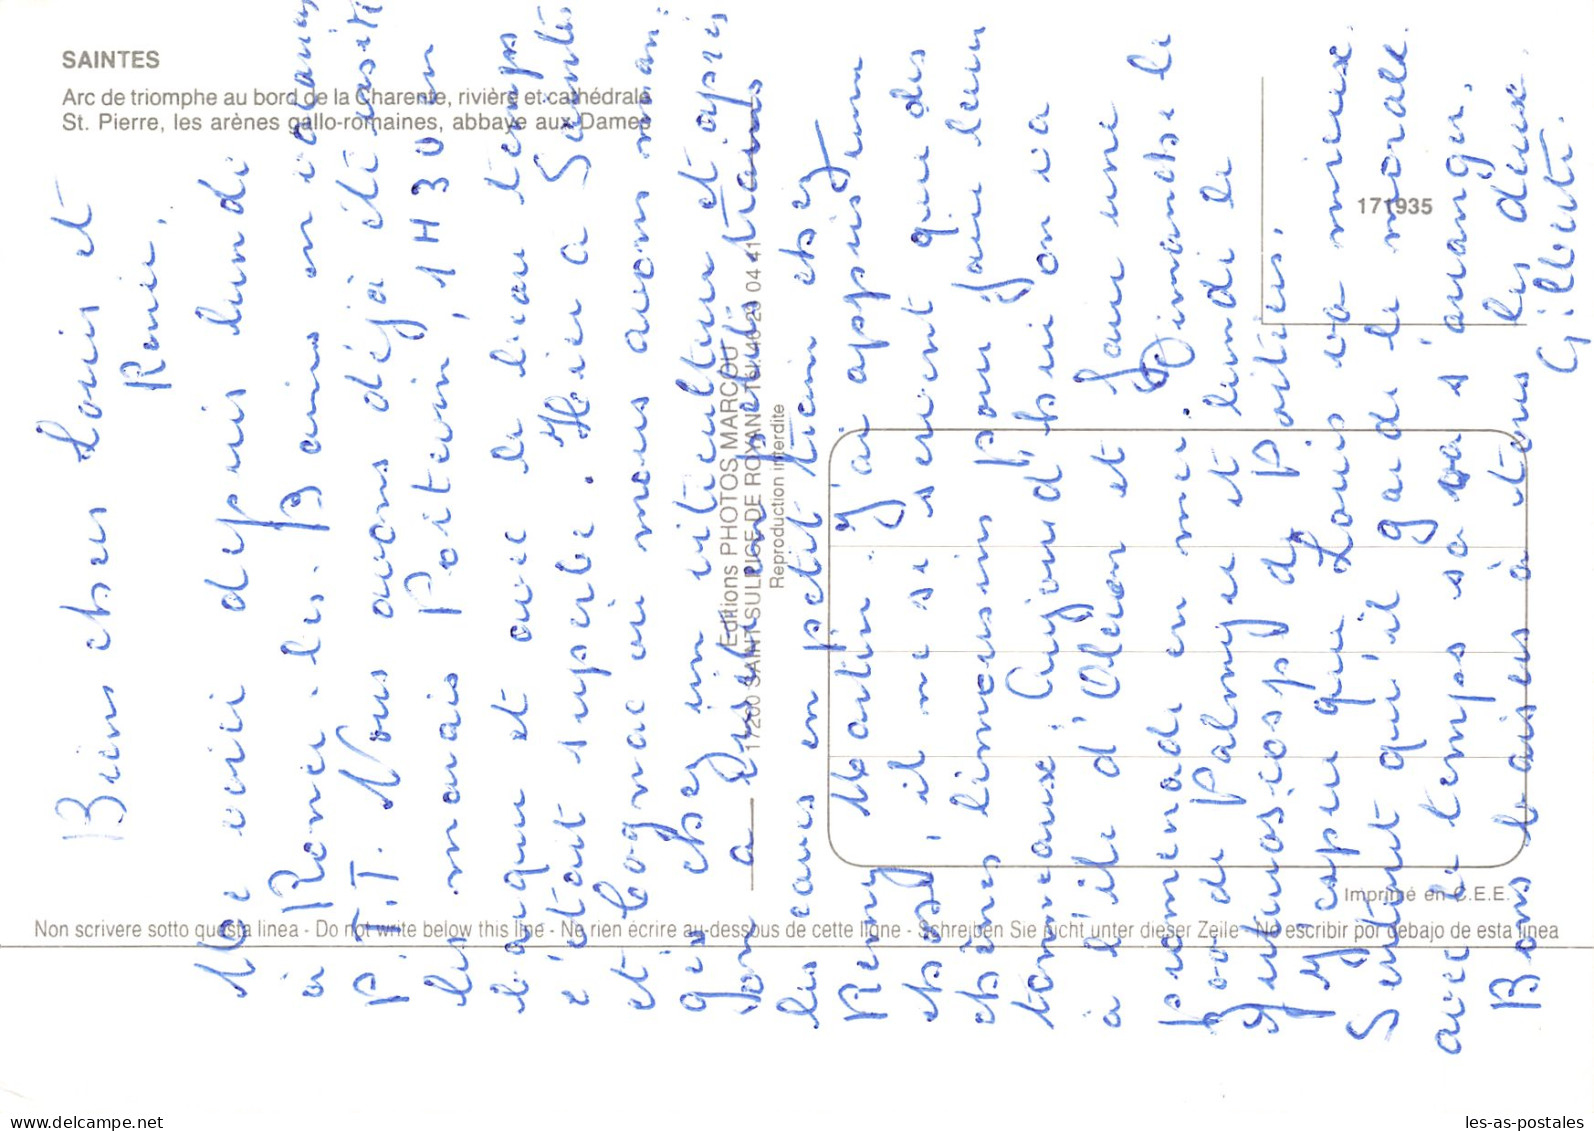 SAINTES
Arc de triomphe au bord de la Charente, rivière et cathédrale
St. Pierre, les arènes gallo-romaines, abbaye aux Dames
171935
Editions PHOTOS MARCOU
17200 SAINT SULPICE DE ROYAN Tél. 46 23 04 41
Reproduction interdite
Imprimé en C.E.E.
Non scrivere sotto questa linea - Do not write below this line - Ne rien écrire au-dessous de cette ligne - Schreiben Sie nicht unter dieser Zeile - No escribir por debajo de esta linea
Bien chers Louis et
Renée,
Me voici depuis lundi
à Ronce-les-Bains en vacances
P.T.T. Nous avons déjà été visité
les marais Poitevin, 1H30 en
barque et avec le beau temps
c'était superbe. Hier à Saintes
et Cognac où nous avons mangé
chez un viticulteur et après
on a visité en petit train
les caves en petit train chez
Rémy Martin. J'ai appris une
chose, il ne se servent que des
chênes limousins pour faire leur
tonneaux. Aujourd'hui on va
à l'île d'Oléron et faire une
promenade en mer. Dimanche le
zoo de Palmyre et lundi le
Futuroscop de Poitiers.
J'espère que Louis va mieux.
Surtout qu'il garde le morale.
avec le temps sa va s'áranger.
Bons baisers à tous les deux.
Gilberte.
les-as-postales